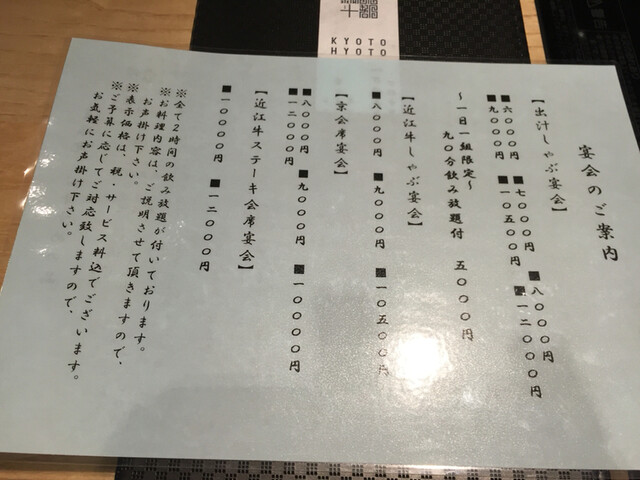 宴会のご案内
【出汁しゃぶ宴会】
■六〇〇〇円 ■七〇〇〇円 ■八〇〇〇円
■九〇〇〇円 ■一〇五〇〇円 ■一二〇〇〇円
～一日一組限定～
九〇分飲み放題付 五〇〇〇円
【近江牛しゃぶ宴会】
■八〇〇〇円 ■九〇〇〇円 ■一〇五〇〇円
【京会席宴会】
■八〇〇〇円 ■九〇〇〇円 ■一〇〇〇〇円
■一二〇〇〇円
【近江牛ステーキ会席宴会】
■一〇〇〇〇円 ■一二〇〇〇円
※全て2時間の飲み放題が付いております。
※お料理内容は、ご説明させて頂きますので、
お声掛け下さい。
※表示価格は、税・サービス料込でございます。
※ご予算に応じてご対応致しますので、
お気軽にお声掛け下さい。
KYOTO
HYOTO